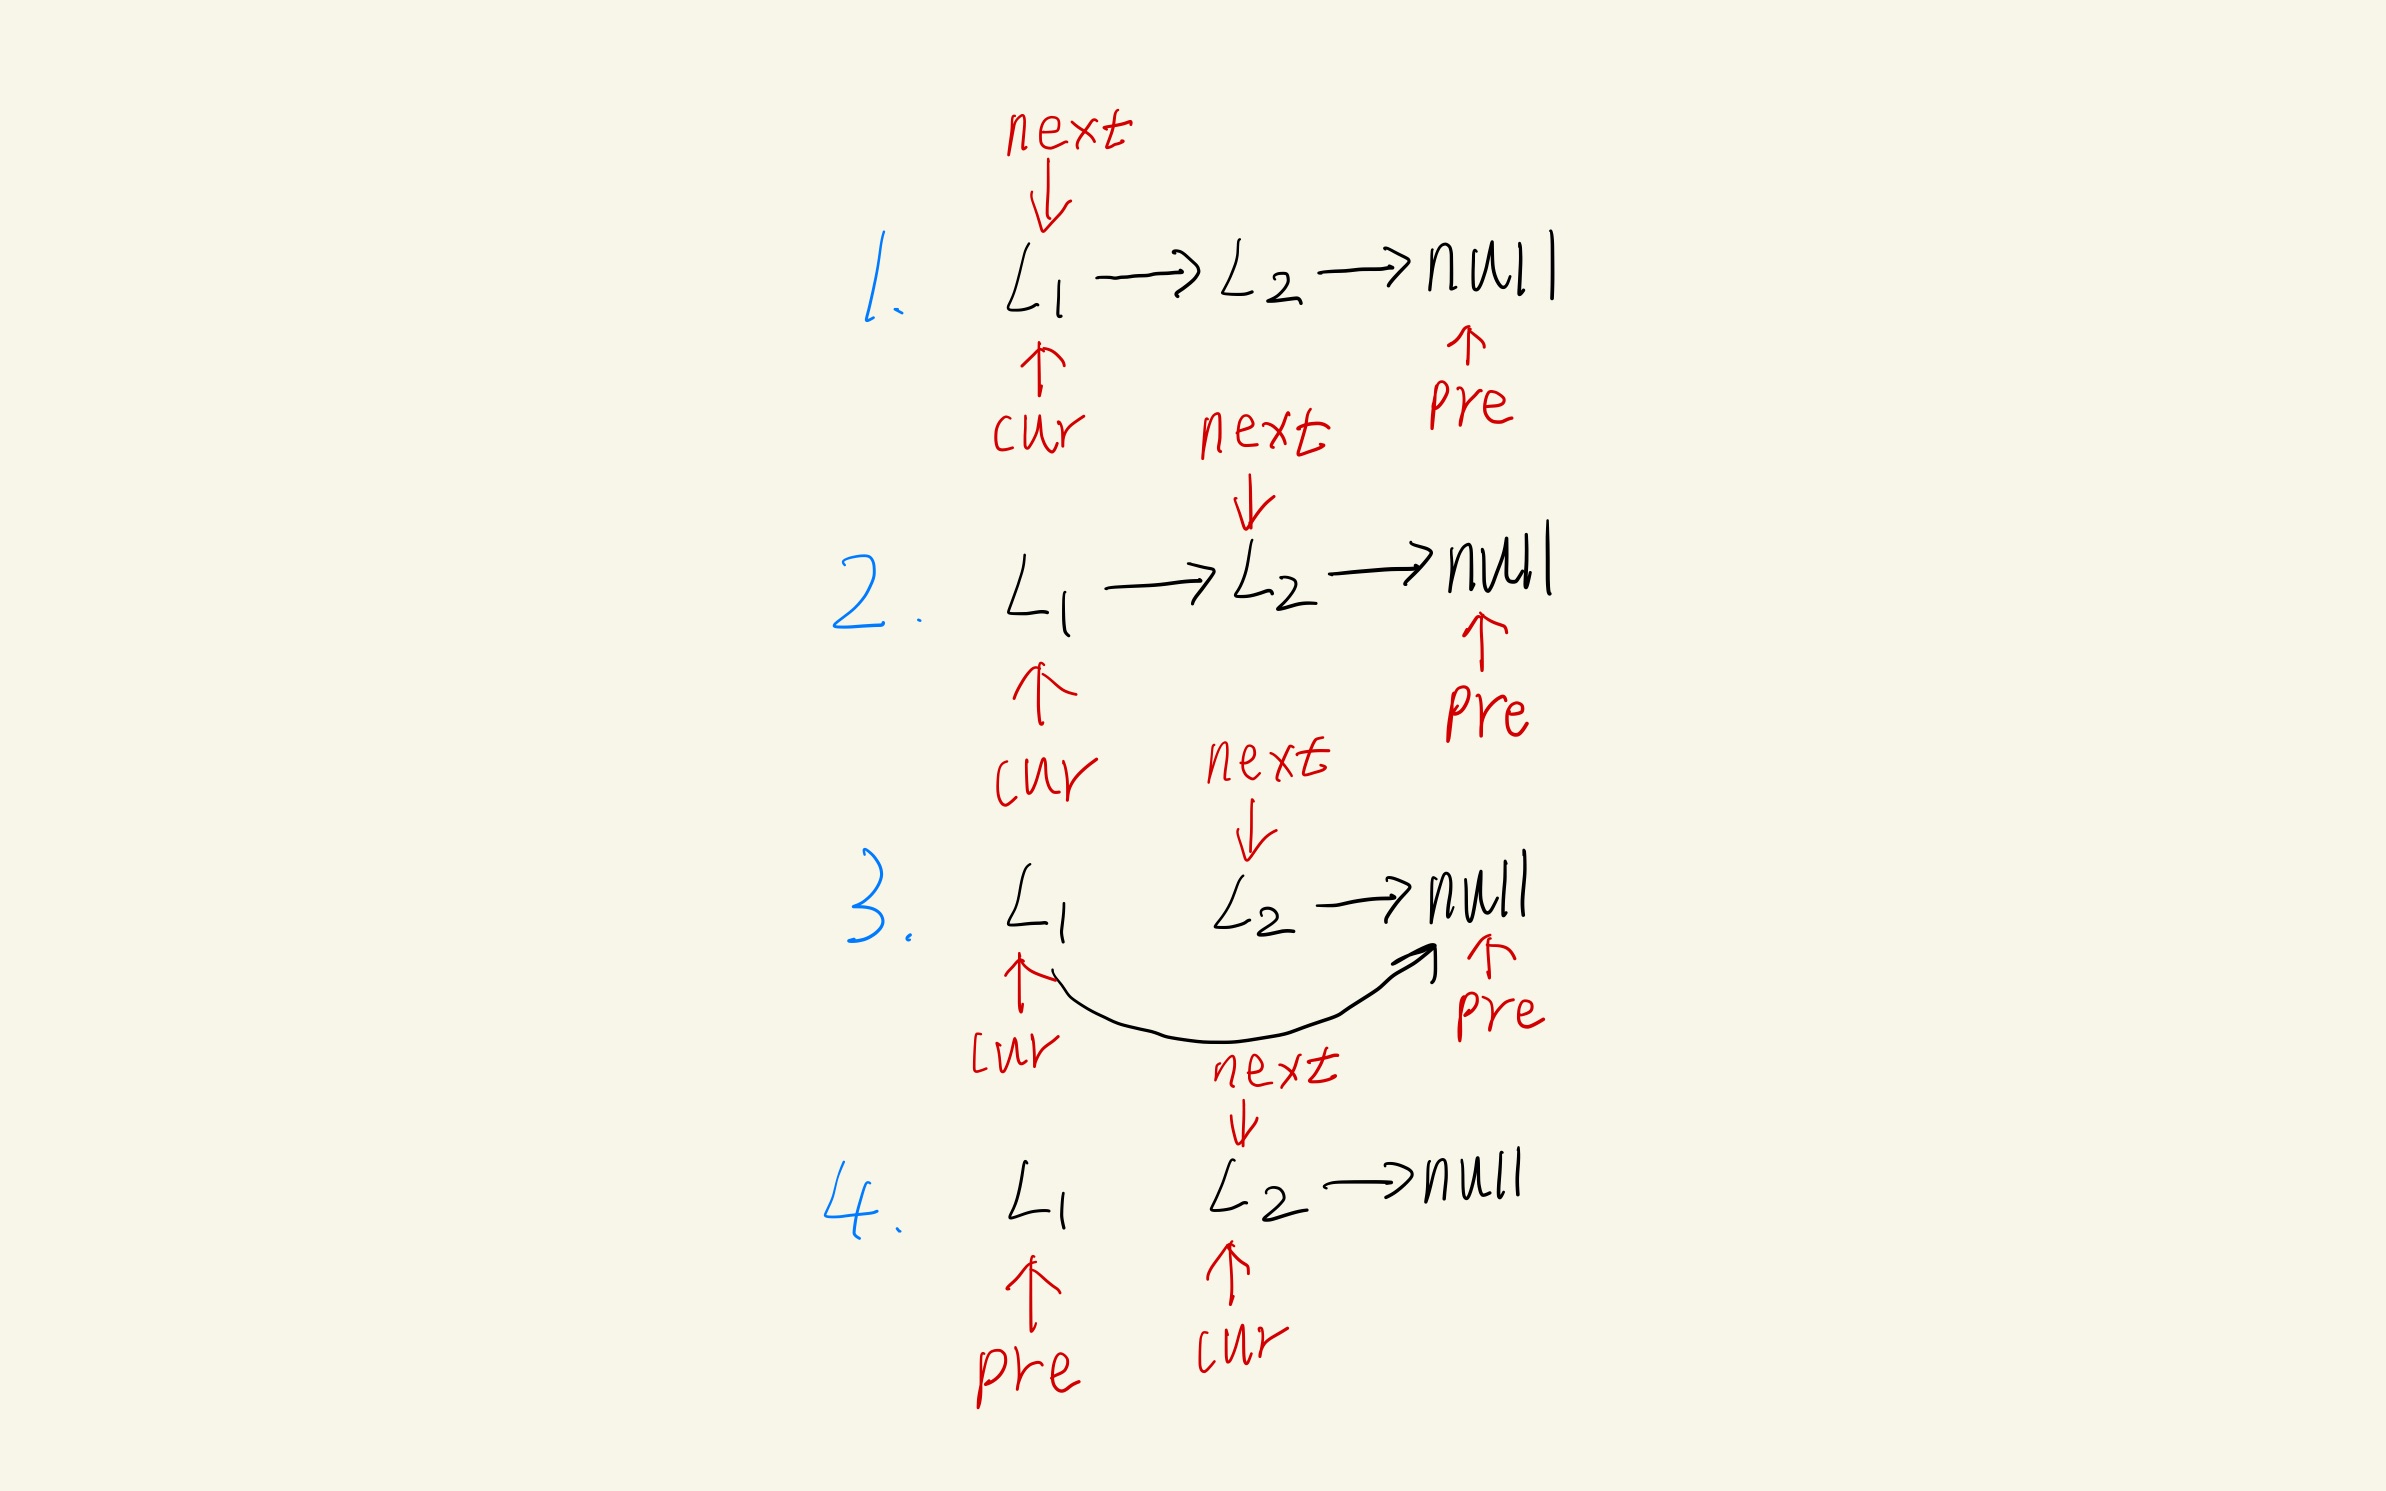 next
1. L1 → L2 → null
cur pre
next
2. L1 → L2 → null
cur pre
next
3. L1 L2 → null
cur pre
next
4. L1 L2 → null
pre cur